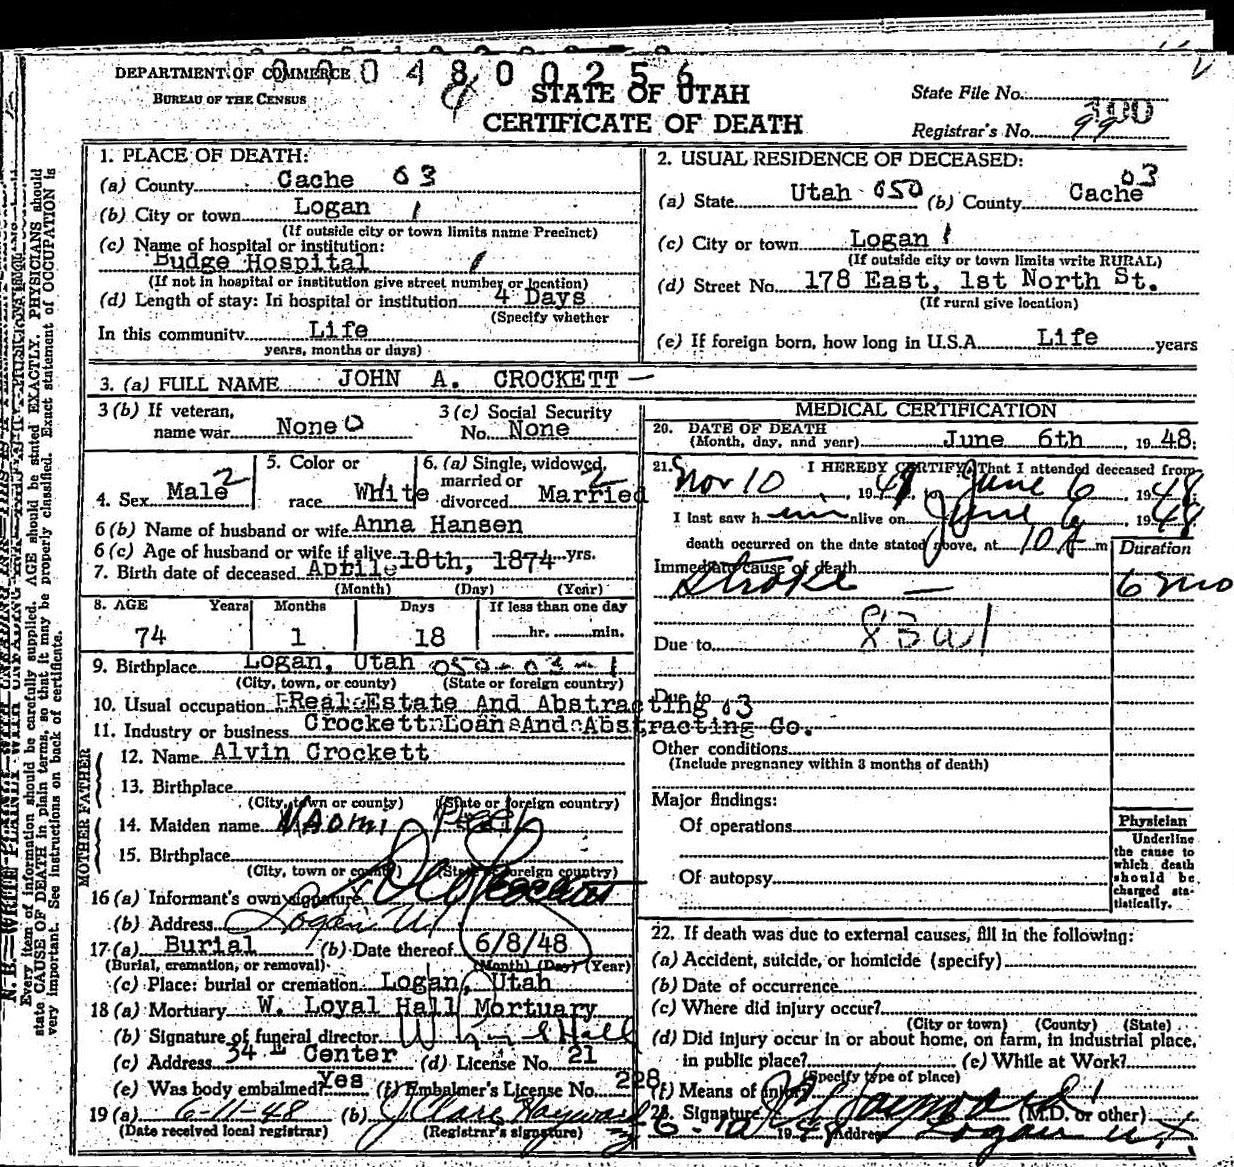 0004800256
DEPARTMENT OF COMMERCE
BUREAU OF THE CENSUS
STATE OF UTAH
CERTIFICATE OF DEATH
State File No.
Registrar's No. 99
1. PLACE OF DEATH:
(a) County Cache 03
(b) City or town Logan 1
(If outside city or town limits name Precinct)
(c) Name of hospital or institution:
Budge Hospital 1
(If not in hospital or institution give street number or location)
(d) Length of stay: In hospital or institution 4 Days
(Specify whether
In this community Life
years, months or days)
2. USUAL RESIDENCE OF DECEASED:
(a) State Utah 050 (b) County Cache 03
(c) City or town Logan 1
(If outside city or town limits write RURAL)
(d) Street No. 178 East, 1st North St.
(If rural give location)
(e) If foreign born, how long in U.S.A. Life years
3. (a) FULL NAME JOHN A. CROCKETT
3 (b) If veteran, name war None 0
3 (c) Social Security No. None
4. Sex Male 2
5. Color or race White
6. (a) Single, widowed, married or divorced Married 2
6 (b) Name of husband or wife Anna Hansen
6 (c) Age of husband or wife if alive yrs.
7. Birth date of deceased April 18th, 1874
(Month) (Day) (Year)
8. AGE Years Months Days If less than one day
74 1 18 hr. min.
9. Birthplace Logan, Utah 050-03-1
(City, town, or county) (State or foreign country)
10. Usual occupation Real Estate And Abstracting 03
11. Industry or business Crockett Loan And Abstracting Co.
FATHER
12. Name Alvin Crockett
13. Birthplace
(City, town or county) (State or foreign country)
MOTHER
14. Maiden name Naomi Peel
15. Birthplace
(City, town or county) (State or foreign country)
16 (a) Informant's own signature
(b) Address Logan Ut
17 (a) Burial (b) Date thereof 6/8/48
(Burial, cremation, or removal) (Month) (Day) (Year)
(c) Place: burial or cremation Logan, Utah
18 (a) Mortuary W. Loyal Hall Mortuary
(b) Signature of funeral director W Loyal Hall
(c) Address 34 E Center (d) License No. 21
(e) Was body embalmed? Yes (f) Embalmer's License No. 228
19 (a) 6-11-48 (b) J Clare Hayward
(Date received local registrar) (Registrar's signature)
MEDICAL CERTIFICATION
20. DATE OF DEATH
(Month, day, and year) June 6th 1948
21. I HEREBY CERTIFY, That I attended deceased from
Nov 10, 1947, to June 6, 1948
I last saw him alive on June 6, 1948
death occurred on the date stated above, at 10 A m
Immediate cause of death Duration
Stroke 6 mo
Due to
Due to
Other conditions
(Include pregnancy within 3 months of death)
Major findings:
Of operations
Of autopsy
Physician
Underline the cause to which death should be charged statistically.
22. If death was due to external causes, fill in the following:
(a) Accident, suicide, or homicide (specify)
(b) Date of occurrence
(c) Where did injury occur?
(City or town) (County) (State)
(d) Did injury occur in or about home, on farm, in industrial place, in public place? (e) While at Work?
(Specify type of place)
(f) Means of injury
23. Signature Hayward (M.D. or other)
1948 Address Logan Ut.
N. B.—WRITE PLAINLY WITH UNFADING INK
Every item of information should be carefully supplied. AGE should be stated EXACTLY. PHYSICIANS should
state CAUSE OF DEATH in plain terms, so that it may be properly classified. Exact statement of OCCUPATION is
very important. See instructions on back of certificate.